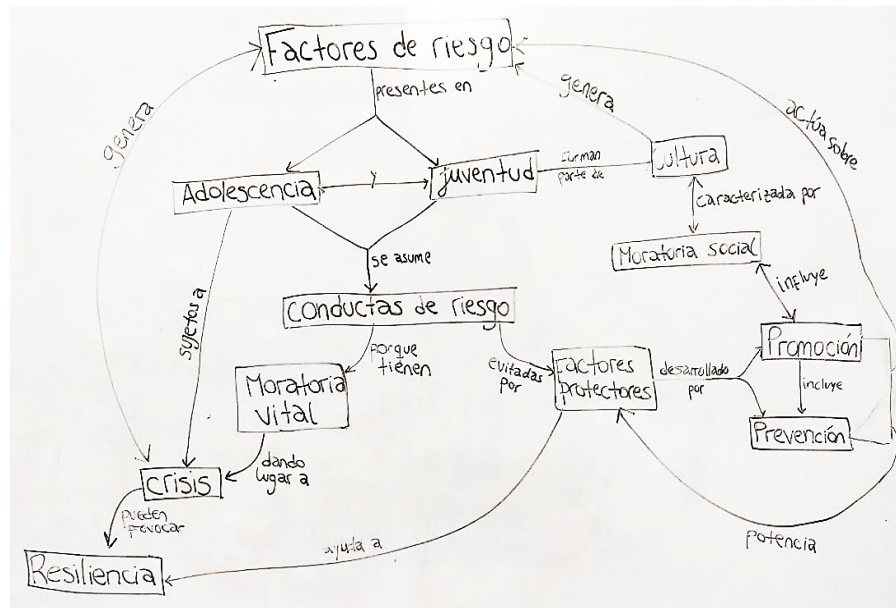 Factores de riesgo
presentes en
genera
genera
actúa sobre
Adolescencia
y
juventud
forman
parte de
Cultura
caracterizada por
Moratoria social
incluye
se asume
sujetos a
Conductas de riesgo
porque
tienen
evitadas
por
Moratoria
vital
Factores
protectores
desarrollado
por
Promoción
incluye
Prevención
dando
lugar a
crisis
pueden
povocar
ayuda a
potencia
Resiliencia